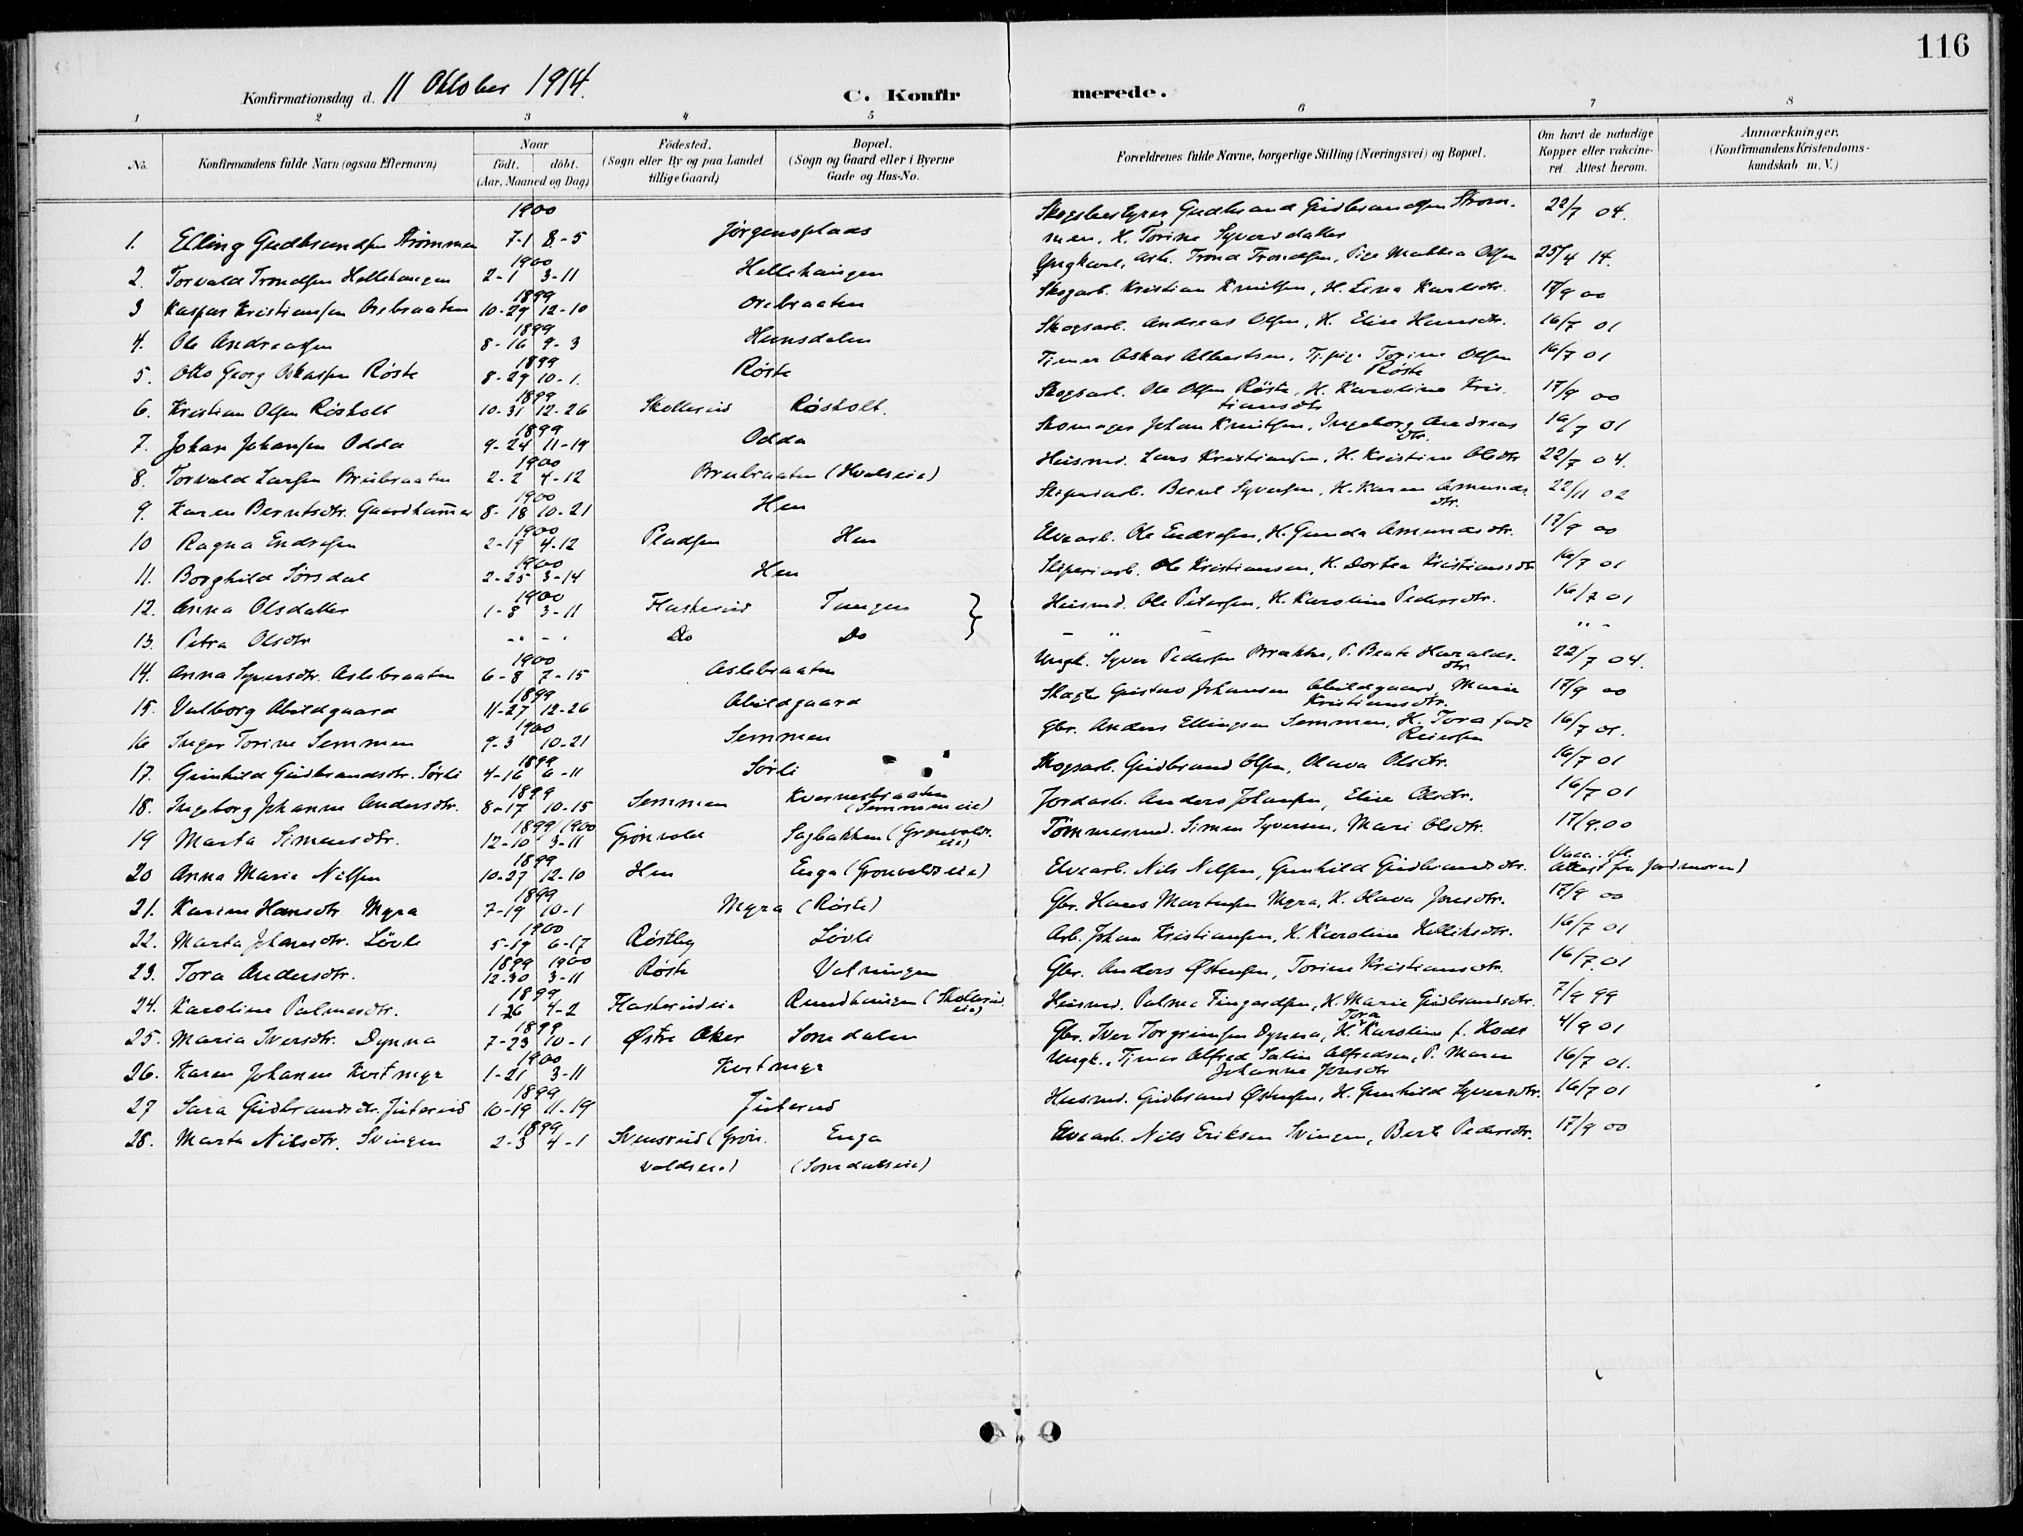 116
Konfirmationsdag d. 11 Oktober 1914.
C. Konfirmerede.
1 2 3 4 5 6 7 8
No. Konfirmandens fulde Navn (ogsaa Efternavn) Naar født. døbt. (Aar, Maaned og Dag) Fødested. (Sogn eller By og paa Landet tillige Gaard) Bopæl. (Sogn og Gaard eller i Byerne Gade og Hus-No. Forældrenes fulde Navne, borgerlige Stilling (Næringsvei) og Bopæl. Om havt de naturlige Kopper eller vakcineret. Attest herom. Anmærkninger. (Konfirmandens Kristendomskundskab m. V.)
1. Elling Gudbrandsen Strømmen 1900 7-1 8-5 Jørgensplads Skogsbestyrer Gudbrand Gudbrandsen Strømmen, H. Torine Syversdatter 22/7 04.
2. Torvald Trondsen Hellehaugen 1900 2-1 3-11 Hellehaugen Ungkarl, Arb. Trond Trondsen, Pige Mathea Olsen 25/4 14.
3 Kaspar Kristiansen Orebraaten 1899 10-29 12-10 Orebraaten Skogarb. Kristian Knutsen, H. Lina Karlsdtr. 17/9 00
4. Ole Andreassen 1899 8-16 9-3 Hunsdalen Skogsarb. Andreas Olsen, H. Elise Hansdtr. 16/7 01
5. Otto Georg Oskarsen Røste 1899 8-29 10-1. Røste Timer Oskar Albertsen, Tj.pige Torine Olsen Røste 16/7 01
6. Kristian Olsen Røsholt 1899 10-31 12-26 Skollerud Røsholt. Skogsarb. Ole Olsen Røste, H. Karoline Kristiansdtr 17/9 00
7. Johan Johansen Odda 1899 9-24 11-19 Odda Skomager Johan Knutsen, Ingeborg Andreasdtr. 16/7 01
8. Torvald Larsen Brubraaten 1900 2-2 4-12 Brubraaten (Hvalseie) Husmd. Lars Kristiansen, H. Kristine Olsdtr 22/7 04.
9. Karen Berntsdtr. Gaardhammer 1900 8-18 10-21 Hen Sliperiarb. Bernt Syversen, H. Karen Amundsdtr. 22/11 02
10 Ragna Endresen 1900 2-19 4-12 Pladsen Hen Elvearb. Ole Endresen, H. Gunda Amundsdtr. 17/9 00
11. Borghild Sørsdal 1900 2-25 3-14 Hen Sliperiarb. Ole Kristiansen, H. Dortea Kristiansdtr 16/7 01
12. Anna Olsdatter 1900 1-8 3-11 Flaskerud Tangen } Husmd. Ole Petersen, H. Karoline Pedersdtr. 16/7 01
13. Petra Olsdtr " - " - Do Do - " - " -
14. Anna Syversdtr. Aslebraaten 1900 6-8 7-15 Aslebraaten Ungk. Syver Pedersen Brække, P. Beate Haraldsdtr. 22/7 04.
15. Valborg Abildgaard 1899 11-27 12-26 Abildgaard Slagt. Gustav Johansen Abildgaard, Marie Kristiansdtr. 17/9 00
16 Inger Torine Semmen 1900 9-3 10-21 Semmen Gbr. Anders Ellingsen Semmen, H. Tora født Reiersen 16/7 01.
17. Gunhild Gudbrandsdtr. Sørli 1899 4-16 6-11 Sørli Skogsarb. Gudbrand Olsen, Olava Olsdtr. 16/7 01
18. Ingeborg Johanne Andersdtr. 1899 8-17 10-15 Semmen Kvernebraaten (Semmeneie) Jordarb. Anders Johansen, Elise Olsdtr. 16/7 01
19 Marta Simensdtr. 1899 1900 12-10 3-11 Grønvold Sagbakken (Grønvoldseie) Tømmermd. Simen Syversen, Mari Olsdtr. 17/9.00
20 Anna Marie Nilsen 1899 10-27 12-10 Hen Enga (Grønvoldseie) Elvearb. Nils Nilsen, Gunhild Gudbrandsdtr. Vacc. ifl. Attest fra Jordmoren)
21. Karen Hansdtr Myra 1899 7-19 10-1 Myra (Røste) Gbr. Hans Martinsen Myra, H. Olava Jonsdtr. 17/9 00
22. Marta Johansdtr. Løvli 1900 5-19 6-17 Røstbg Løvli Arb. Johan Kristiansen, H. Karoline Helliksdtr. 16/7 01
23. Tora Andersdtr. 1899 1900 12-30 3-11 Røste Valningen Gbr. Anders Østensen, Torine Kristiansdtr. 16/7.01
24. Karoline Palmesdtr. 1899 1-26 4-2 Flaskerudeie Rundhaugen (Skollerudeie) Husmd. Palme Fingardsen, H. Marie Gudbrandsdtr. 7/9 99
25. Maria Iversdtr. Dynna 1899 7-23 10-1 Østre Aker Somdalen Gbr. Iver Torgrimsen Dynna, H. Tora Karoline f. Hods 4/9 01
26. Karen Johanne Kortmyr 1900 1-21 3-11 Kortmyr Ungk., Timer Alfred Salin Alfredsen, P. Maren Johanne Jonsdtr 16/7 01.
27 Sara Gudbrandsdtr. Juterud 1899 10-19 11-19 Juterud Husmd. Gudbrand Østensen, H. Gunhild Syversdtr. 16/7 01
28. Marta Nilsdtr. Svingen 1899 2-3 4-1 Svensrud (Grønvoldseie) Enga (Somdalseie) Elvearb. Nils Eriksen Svingen, Berte Pedersdtr. 17/9 00